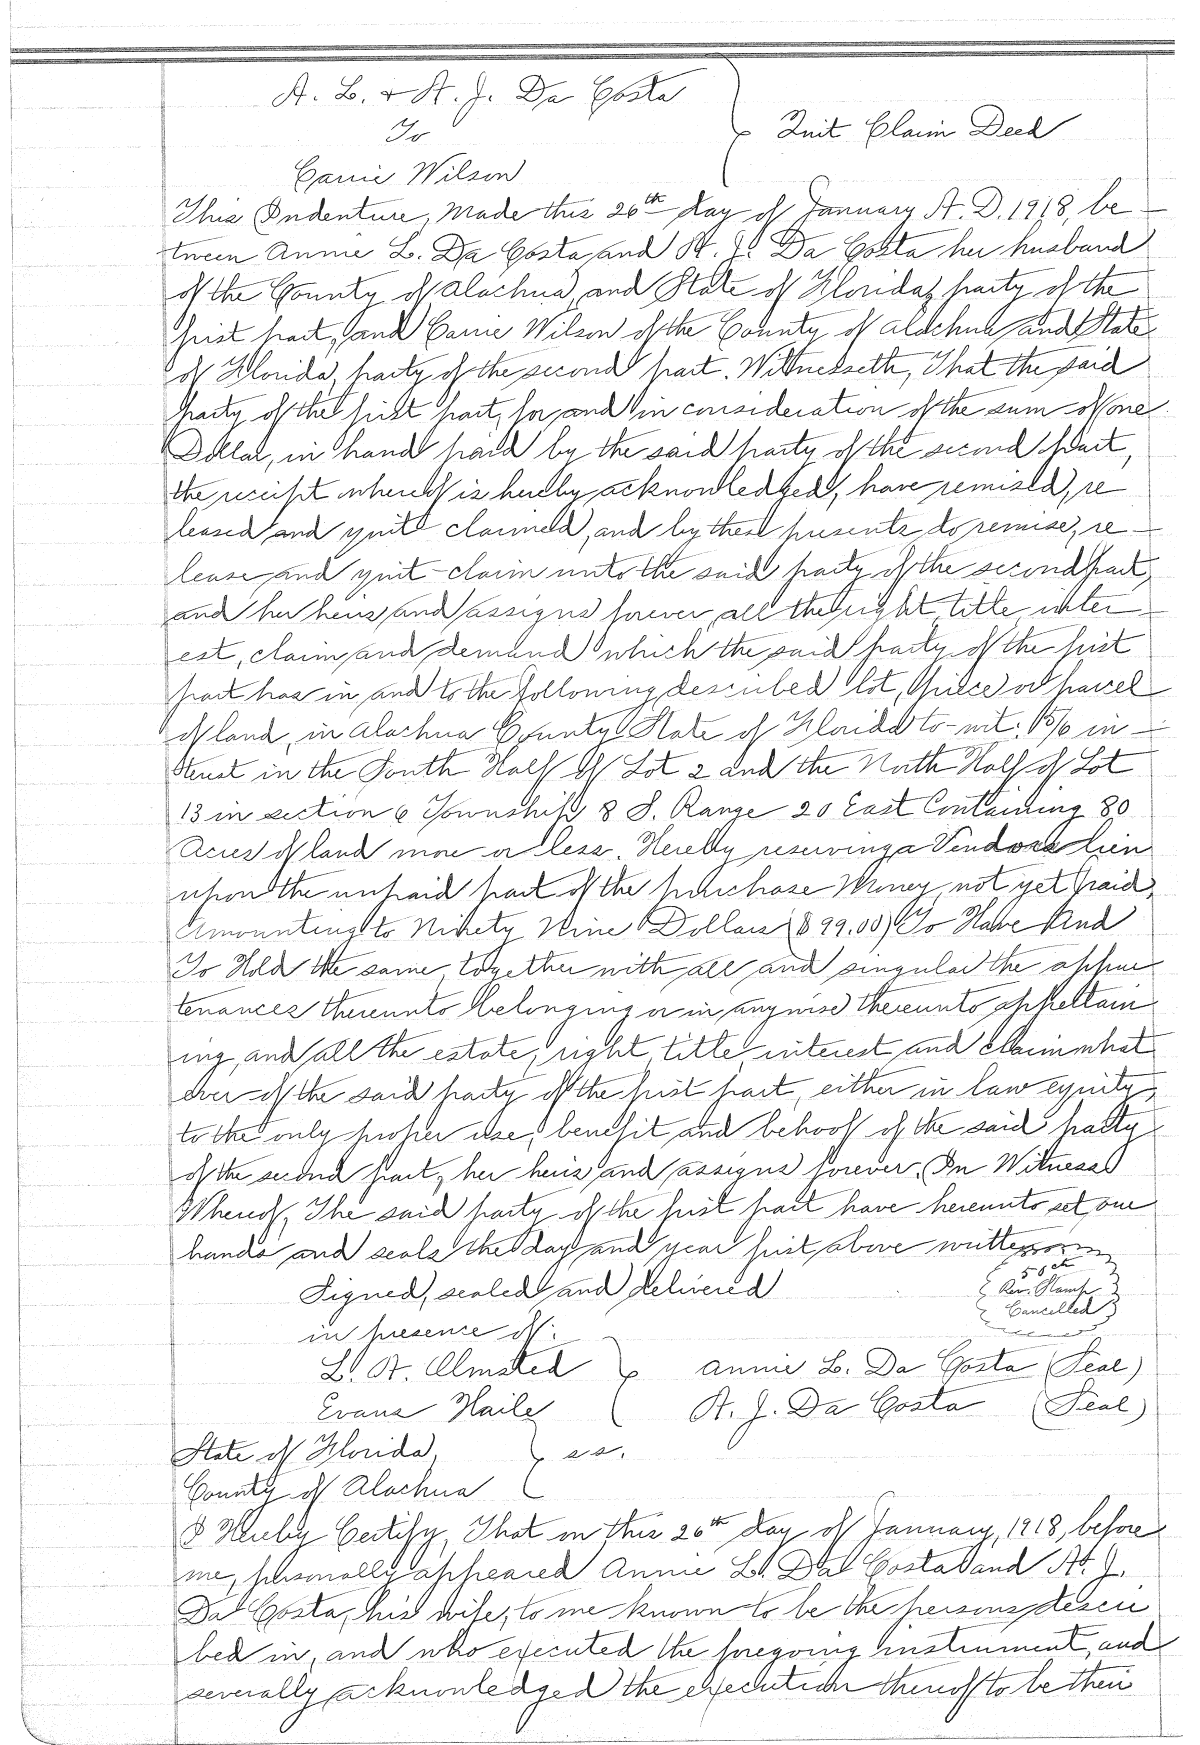 A. L. & A. J. Da Costa
To
Quit Claim Deed
Carrie Wilson
This Indenture, Made this 26th day of January A. D. 1918, be—
tween Annie L. Da Costa and A. J. Da Costa her husband
of the County of Alachua, and State of Florida, party of the
first part, and Carrie Wilson of the County of Alachua and State
of Florida, party of the second part. Witnesseth, That the said
party of the first part, for and in consideration of the sum of one
Dollar, in hand paid by the said party of the second part,
the receipt whereof is hereby acknowledged, have remised, re
leased and quit claimed, and by these presents do remise, re—
lease and quit-claim unto the said party of the second part,
and her heirs and assigns forever, all the right, title, inter—
est, claim and demand which the said party of the first
part has in and to the following described lot, piece or parcel
of land, in Alachua County State of Florida to-wit: 5/6 in—
terest in the South Half of Lot 2 and the North Half of Lot
13 in section 6 Township 8 S. Range 20 East Containing 80
Acres of land more or less. Hereby reserving a Vendors lien
upon the unpaid part of the purchase Money not yet paid,
Amounting to Ninety Nine Dollars ($99.00) To Have And
To Hold the same, together with all and singular the appur
tenances thereunto belonging or in anywise thereunto appertain
ing, and all the estate, right, title, interest and claim what
ever of the said party of the first part, either in law equity,
to the only proper use, benefit and behoof of the said party
of the second part, her heirs and assigns forever. In Witness
Whereof, The said party of the first part have hereunto set our
hands and seals the day and year first above written
50ct
Rev. Stamp
Cancelled
Signed, sealed and delivered
in presence of:
L. A. Olmsted Annie L. Da Costa (Seal)
Evans Haile A. J. Da Costa (Seal)
State of Florida, ss.
County of Alachua
I Hereby Certify, That on this 26th day of January, 1918, before
me, personally appeared Annie L. Da Costa and A. J.
Da Costa, his wife, to me known to be the persons descri
bed in, and who executed the foregoing instrument, and
severally acknowledged the execution thereof to be their